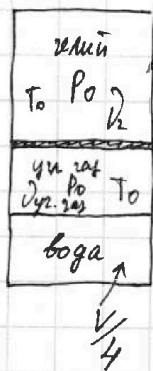 гелий
T₀ P₀ ν₂
угл газ
νугл.газ P₀ T₀
вода
V/4